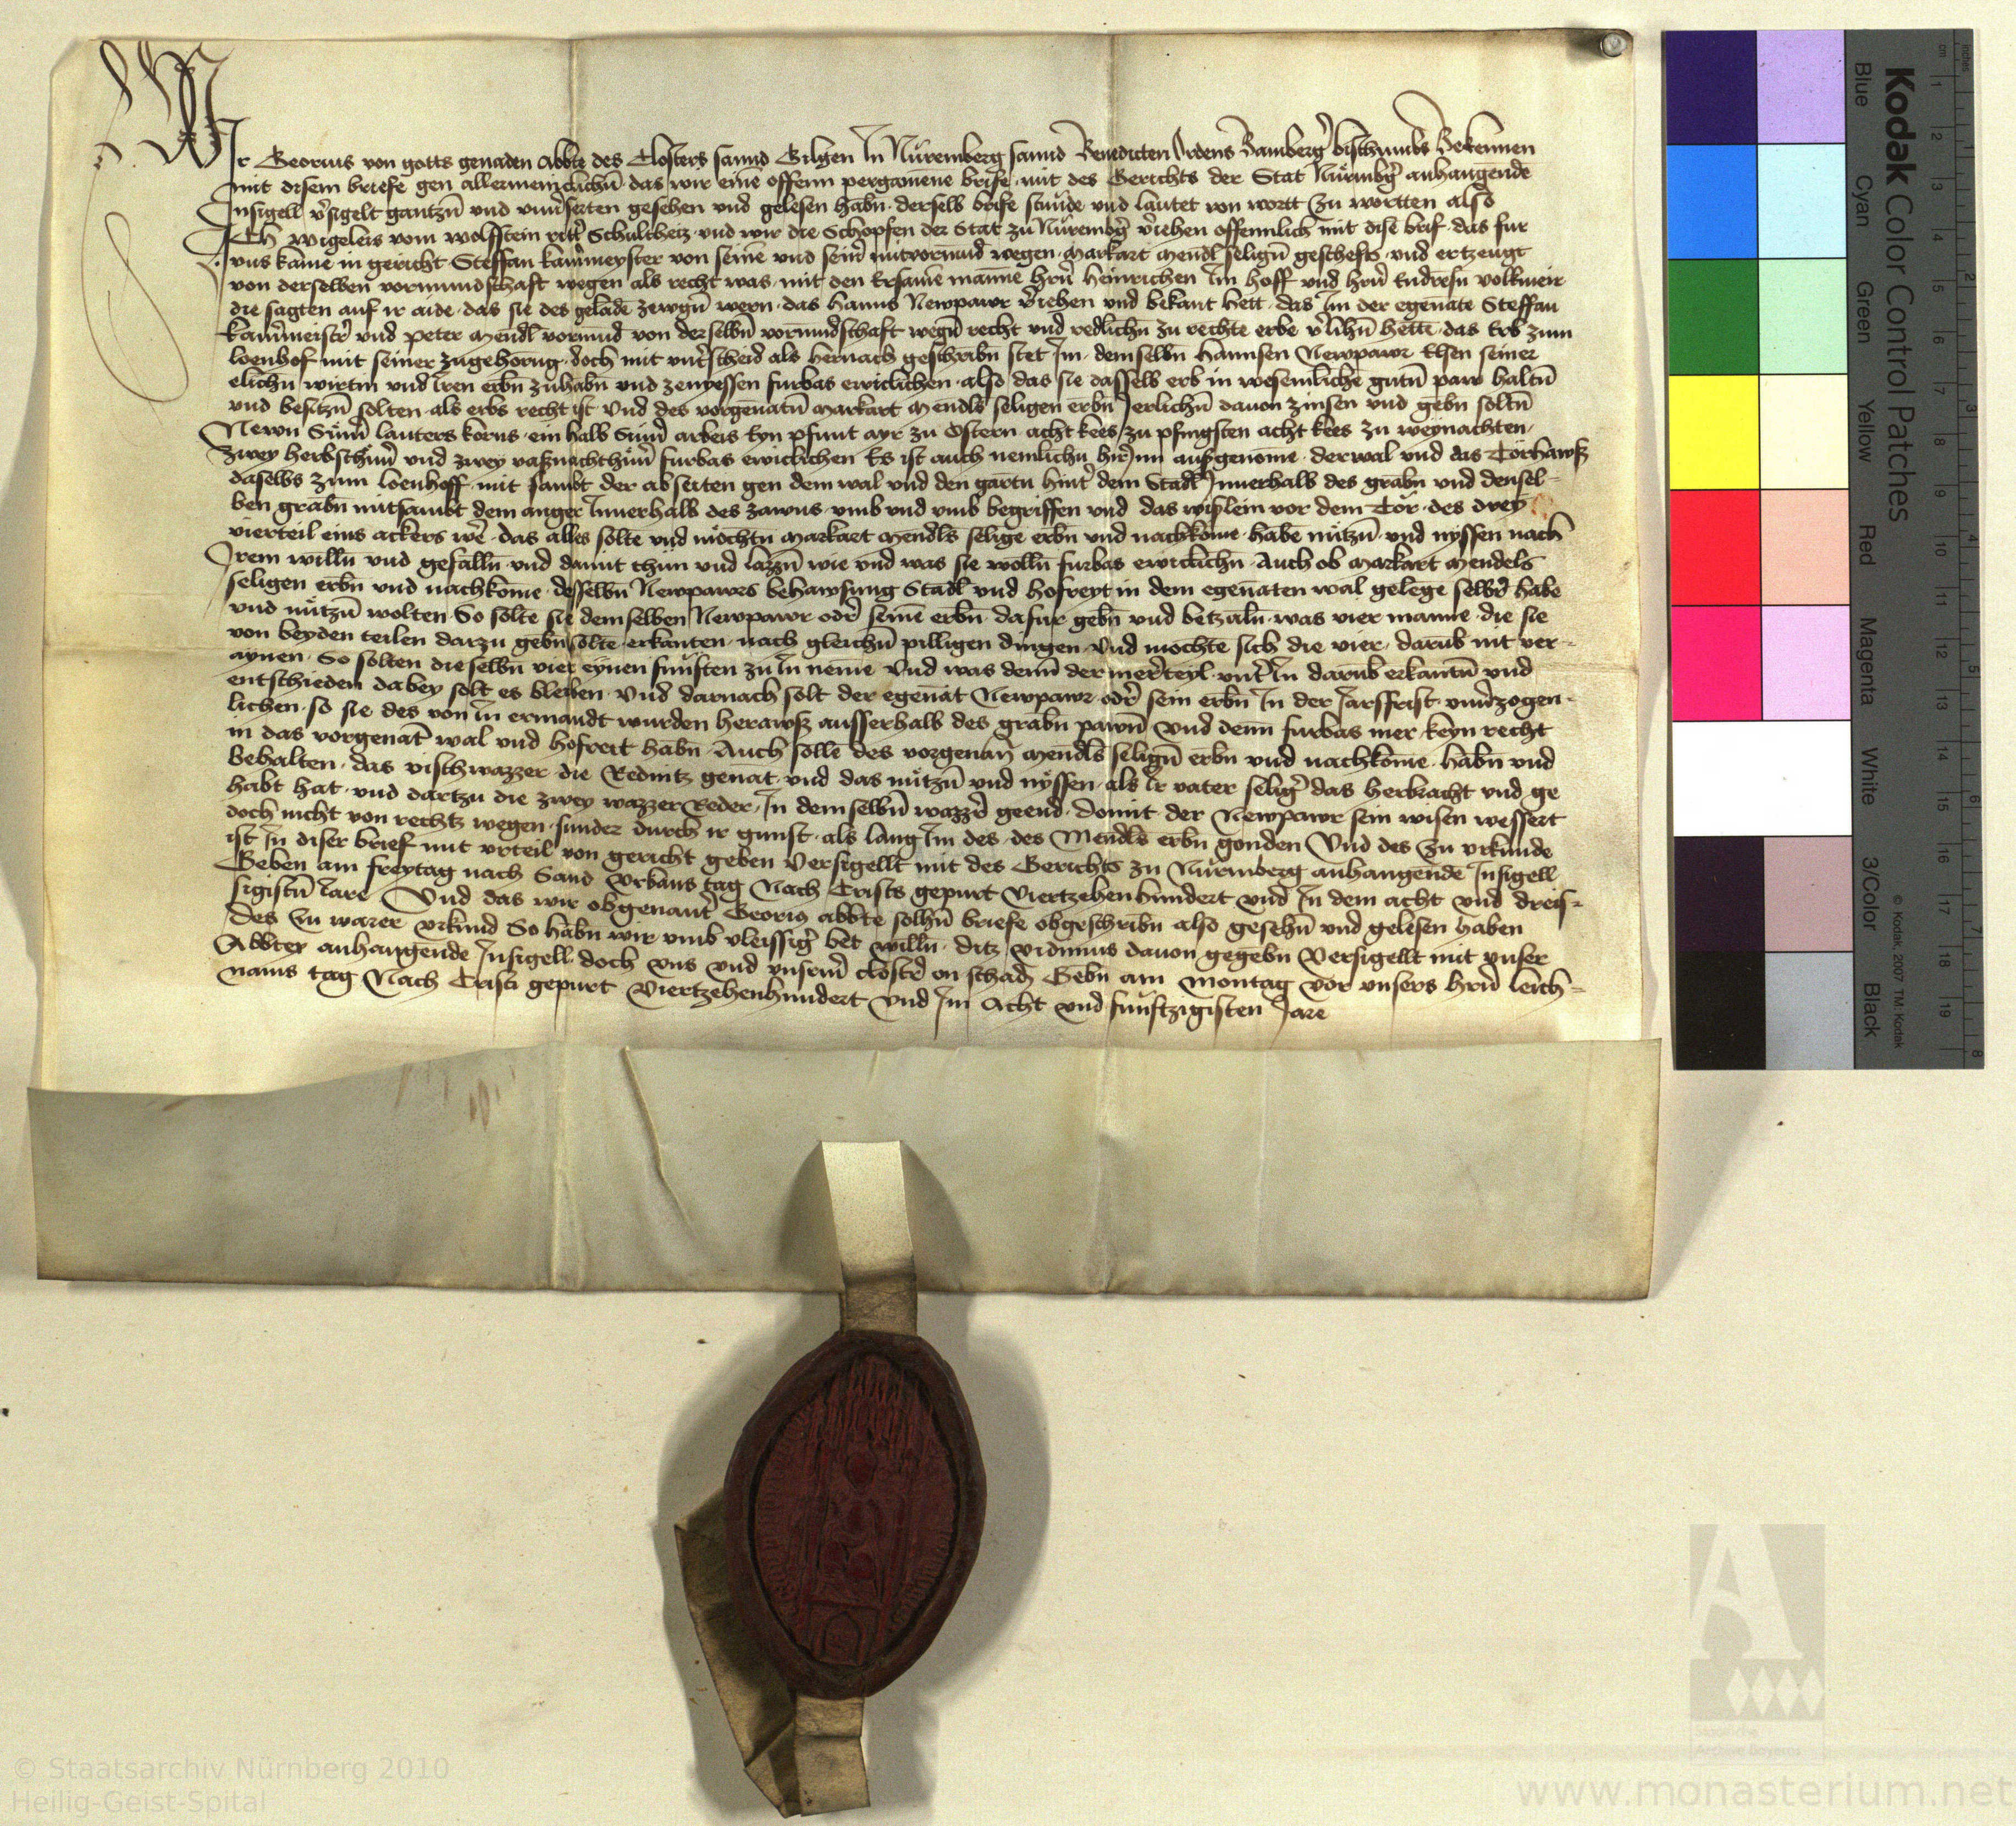 Wir Georius von gotts genaden Abbte des Closters sannd Gilgen In Nuremberg sannd Benedicten Ordens Bamberg bischtumbs Bekennen
mit disem briefe gen allermeniclichn das wir eine offenn pergamene brife mit des Gerichts der Stat Nurmbg anhangende
Insigell vsigelt gantzn vnd vnuserten gesehen vnd gelesen habn derselb brife stunde vnd lautet von wortt zu wortten also
Ich wigeleis vom wolfstein rittr Schultheiz vnd wir die Schopfen der Stat zu Nurembg vriehen offennlich mit dise brif das fur
vns kame in gericht Steffan kammeyster von seine vnd seinr mitvormund wegen Markart Mendl selign geschefts vnd ertzeugt
von derselben vormundschaft wegen als recht was mit den Ersame manne hrn Heinrichen Im hoff vnd hrn Endresn volkmeir
die sagten auf ir aide das sie des gelade zewgn wern das hanns Newpawr vriehen vnd bekant hett das Im der egenate Steffan
kammeistr vnd peter Mendl vormund von derselbn vormundschaft wegn recht vnd redlichn zu rechte erbe vlihn hette das Erb zum
loenhof mit seiner zugehorug doch mit vntrscheid als hernach geschribn stet Im demselbn hannsen Newpawr Elsen seiner
elichn wirtin vnd Iren erbn zuhabn vnd zenyessen furbas ewiclichen also das sie dasselb erb in wesenliche gutn paw haltn
vnd besitzn solten als erbs recht ist Vnd des vorgenatn Markart Mendls seligen erbn Jerlichn dauon zinsen vnd gebn soltn
Newn Sumr lauters korns ein halb Sumr arbeis Eyn pfunt ayr zu Ostern acht kees zu pfingsten acht kees zu weynachten
zwey herbsthunr vnd zwey vasznachthunr furbas ewiclichen Es ist auch nemlichn hirInn ausgenome der wal vnd das Torhawsz
daselbs zum loenhoff mit sambt der abseiten gen dem wal vnd den gartn hintr dem Stadl Innerhalb des grabn vnd densel-
ben grabn mitsambt dem anger Innerhalb des zawns vmb vnd vmb begriffen vnd das wislein vor dem Tor des drey
vierteil eins ackers we das alles solte vnd mochtn Markart Mendls selige erbn vnd nachkome habe nutzn vnd nyssen nach
Irem willn vnd gefalln vnd damit thun vnd lazzn wie vnd was sie wolln furbas ewiclichn Auch ob Markart Mendels
seligen erbn vnd nachkome desselbn Newpawrs behawsung Stadl vnd hofreyt in dem egenaten wal gelege selbr habe
vnd nutzn wolten So solte sie demselben Newpawr odr seine erbn dafur gebn vnd betzaln was vier manne die sie
von beyden teilen darzu gebn solte erkanten nach gleichn pilligen dingen Vnd mochte sich die vier darub nit ver-
aynen So solten dieselbn vier eynen funften zu In neme Vnd was denn der merteyl vntr In darub erkantn vnd
entschieden dabey solt es bleiben Vnd darnach solt der egenat Newpawr odr sein erbn In der Jarsfrist vnurzogen-
lichen so sie des von In ermandt wurden herawsz ausserhalb des grabn pawn Vnd denn furbas mer keyn recht
in das vorgenat wal vnd hofreit habn Auch solle des vorgenan Mendls selign erbn vnd nachkome habn vnd
behalten das vischwazzer die Rednitz genat vnd das nutzn vnd nyssen als Ir vater selig das herbracht vnd ge
habt hat vnd dartzu die zwey wazzer Reder In demselbn wazzr geend Domit der Newpawr sein wisen wessert
doch nicht von rechtz wegen sunder durch ir gunst als lang Im des des Mendls erbn gonden Vnd des zu vrkunde
ist In diser brief mit vrteil von gericht geben Versigellt mit des Gerichts zu Nurmberg anhangende Insigell
Geben am freytag nach Sand Vrbans tag Nach Crists gepurt Viertzehenhundert vnd In dem acht vnd dreis-
sigistn Iare Vnd das wir obgenant Georig abbte solhn briefe obgeschribn also gesehn vnd gelesen haben
Des zu warer vrkund So habn wir vmb vleissig bet willn ditz vidimus dauon gegebn Versigellt mit vnser
Abbtey anhangende Insigell doch vns vnd vnserm clostr on schad Gebn am Montag vor vnsers hrn leich-
nams tag Nach Cristi gepurt Viertzehenhundert vnd Im Acht vnd funftzigisten Jare
Kodak Color Control Patches
Blue Cyan Green Yellow Red Magenta White 3/Color Black
© Kodak, 2007 TM: Kodak
© Staatsarchiv Nürnberg 2010
Heilig-Geist-Spital
Staatliche
Archive Bayerns
www.monasterium.net